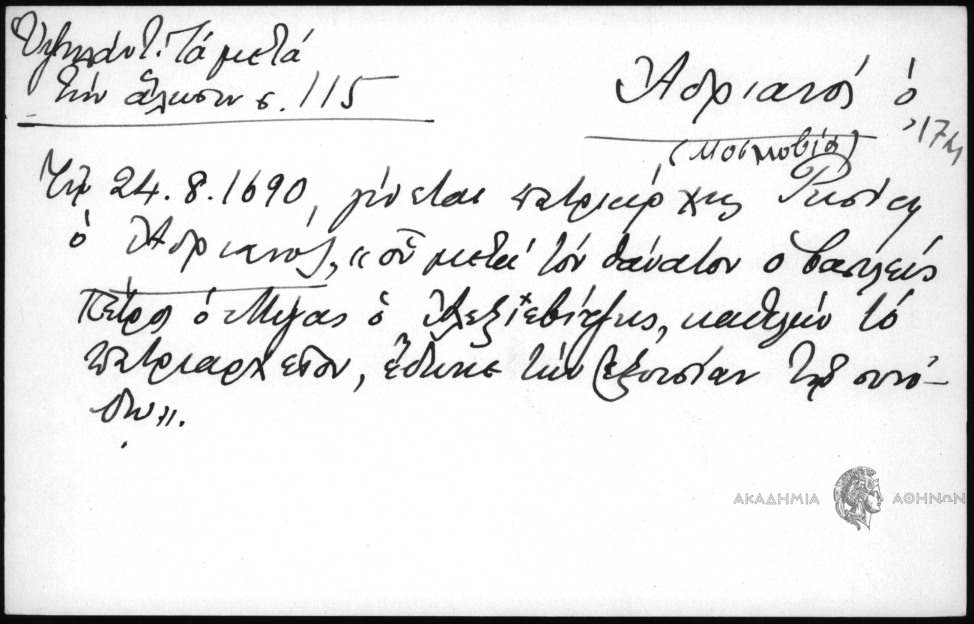 Ὑψηλάντ. Τά μετά
τήν ἅλωσιν σ. 115
Ἀδριανός ὁ
(Μοσχοβία)
17
Τῇ 24.8.1690, γίνεται πατριάρχης Ρωσίας
ὁ Ἀδριανός, "οὗ μετά τόν θάνατον ὁ βασιλεύς
Πέτρος ὁ Μέγας ὁ Ἀλεξιεβίτζης, καθελών τό
πατριαρχεῖον, ἔδωκε τήν ἐξουσίαν τῇ συνό-
δῳ".
ΑΚΑΔΗΜΙΑ ΑΘΗΝΩΝ